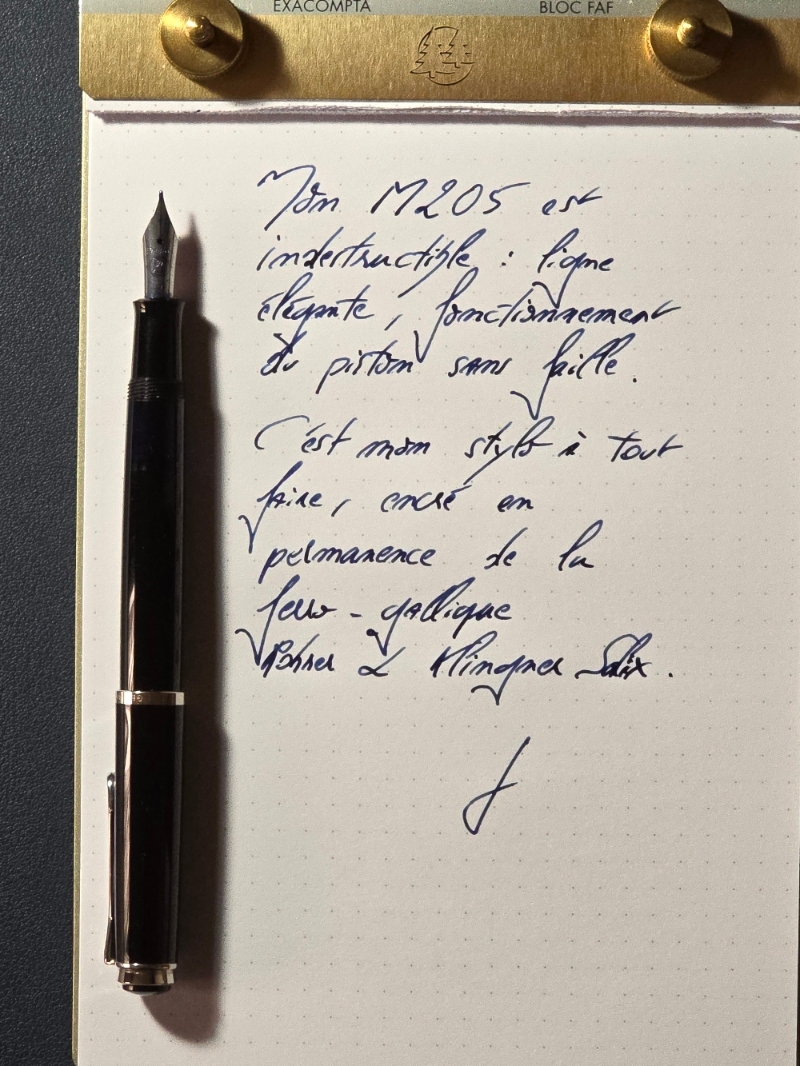 EXACOMPTA BLOC FAF
Mon M205 est
indestructible : ligne
élégante, fonctionnement
du piston sans faille.
C'est mon stylo à tout
faire, encré en
permanence de la
ferro-gallique
Rohrer & Klingner Salix.